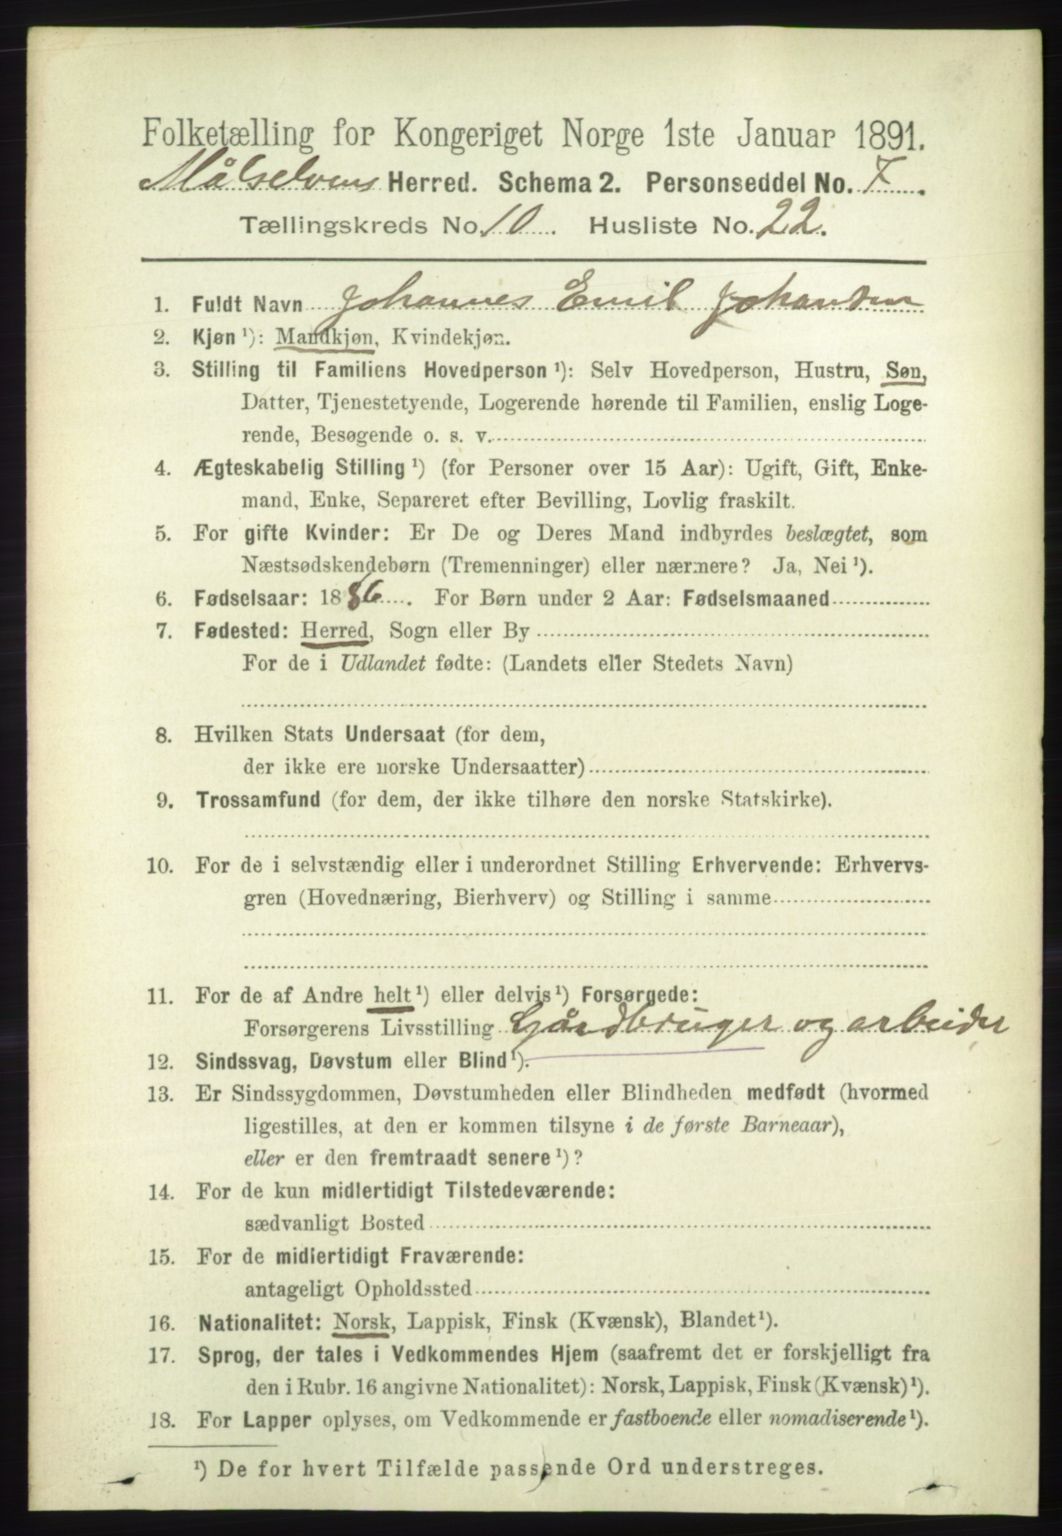 Folketælling for Kongeriget Norge 1ste Januar 1891.
Målselvens Herred. Schema 2. Personseddel No. 7.
Tællingskreds No. 10. Husliste No. 22.
1. Fuldt Navn Johannes Emil Johansen
2. Kjøn ¹): Mandkjøn, Kvindekjøn.
3. Stilling til Familiens Hovedperson ¹): Selv Hovedperson, Hustru, Søn,
Datter, Tjenestetyende, Logerende hørende til Familien, enslig Loge-
rende, Besøgende o. s. v.
4. Ægteskabelig Stilling ¹) (for Personer over 15 Aar): Ugift, Gift, Enke-
mand, Enke, Separeret efter Bevilling, Lovlig fraskilt.
5. For gifte Kvinder: Er De og Deres Mand indbyrdes beslægtet, som
Næstsødskendebørn (Tremenninger) eller nærmere? Ja, Nei ¹).
6. Fødselsaar: 1886. For Børn under 2 Aar: Fødselsmaaned
7. Fødested: Herred, Sogn eller By
For de i Udlandet fødte: (Landets eller Stedets Navn)
8. Hvilken Stats Undersaat (for dem,
der ikke ere norske Undersaatter)
9. Trossamfund (for dem, der ikke tilhøre den norske Statskirke).
10. For de i selvstændig eller i underordnet Stilling Erhvervende: Erhvervs-
gren (Hovednæring, Bierhverv) og Stilling i samme
11. For de af Andre helt ¹) eller delvis ¹) Forsørgede:
Forsørgerens Livsstilling Gårdbruger og arbeider
12. Sindssvag, Døvstum eller Blind ¹).
13. Er Sindssygdommen, Døvstumheden eller Blindheden medfødt (hvormed
ligestilles, at den er kommen tilsyne i de første Barneaar),
eller er den fremtraadt senere ¹)?
14. For de kun midlertidigt Tilstedeværende:
sædvanligt Bosted
15. For de midlertidigt Fraværende:
antageligt Opholdssted
16. Nationalitet: Norsk, Lappisk, Finsk (Kvænsk), Blandet ¹).
17. Sprog, der tales i Vedkommendes Hjem (saafremt det er forskjelligt fra
den i Rubr. 16 angivne Nationalitet): Norsk, Lappisk, Finsk (Kvænsk) ¹).
18. For Lapper oplyses, om Vedkommende er fastboende eller nomadiserende ¹).
¹) De for hvert Tilfælde passende Ord understreges.